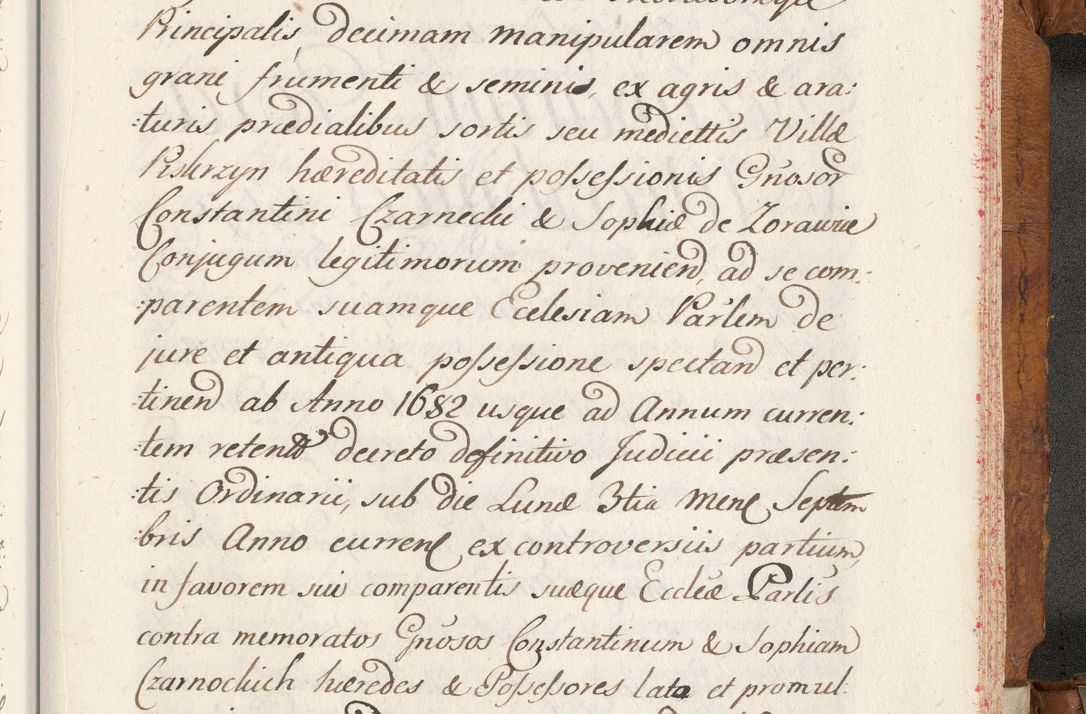 Principalis, decimam manipularem omnis
grani frumenti & seminis, ex agris & ara:
:turis prædialibus sortis seu mediettis Villæ
Piskrzyn hæreditatis et possessionis Gnosor
Constantini Czarnecki & Sophiæ de Zorawie
Conjugum legitimorum provenien, ad se com:
:parentem suamque Ecclesiam Parlem de
jure et antiqua possessione spectand et per:
:tinend ab Anno 1682 usque ad Annum curren:
:tem retent decreto definitivo Judicii præsen:
:tis Ordinarii, sub die Lunæ 3tia Mens Septem
bris Anno curren ex controversiis partium,
in favorem sui comparentis suæque Eccleæ Parlis
contra memoratos Gnosos Constantinum & Sophiam
Czarnockich hæredes & Possessores lata et promul: